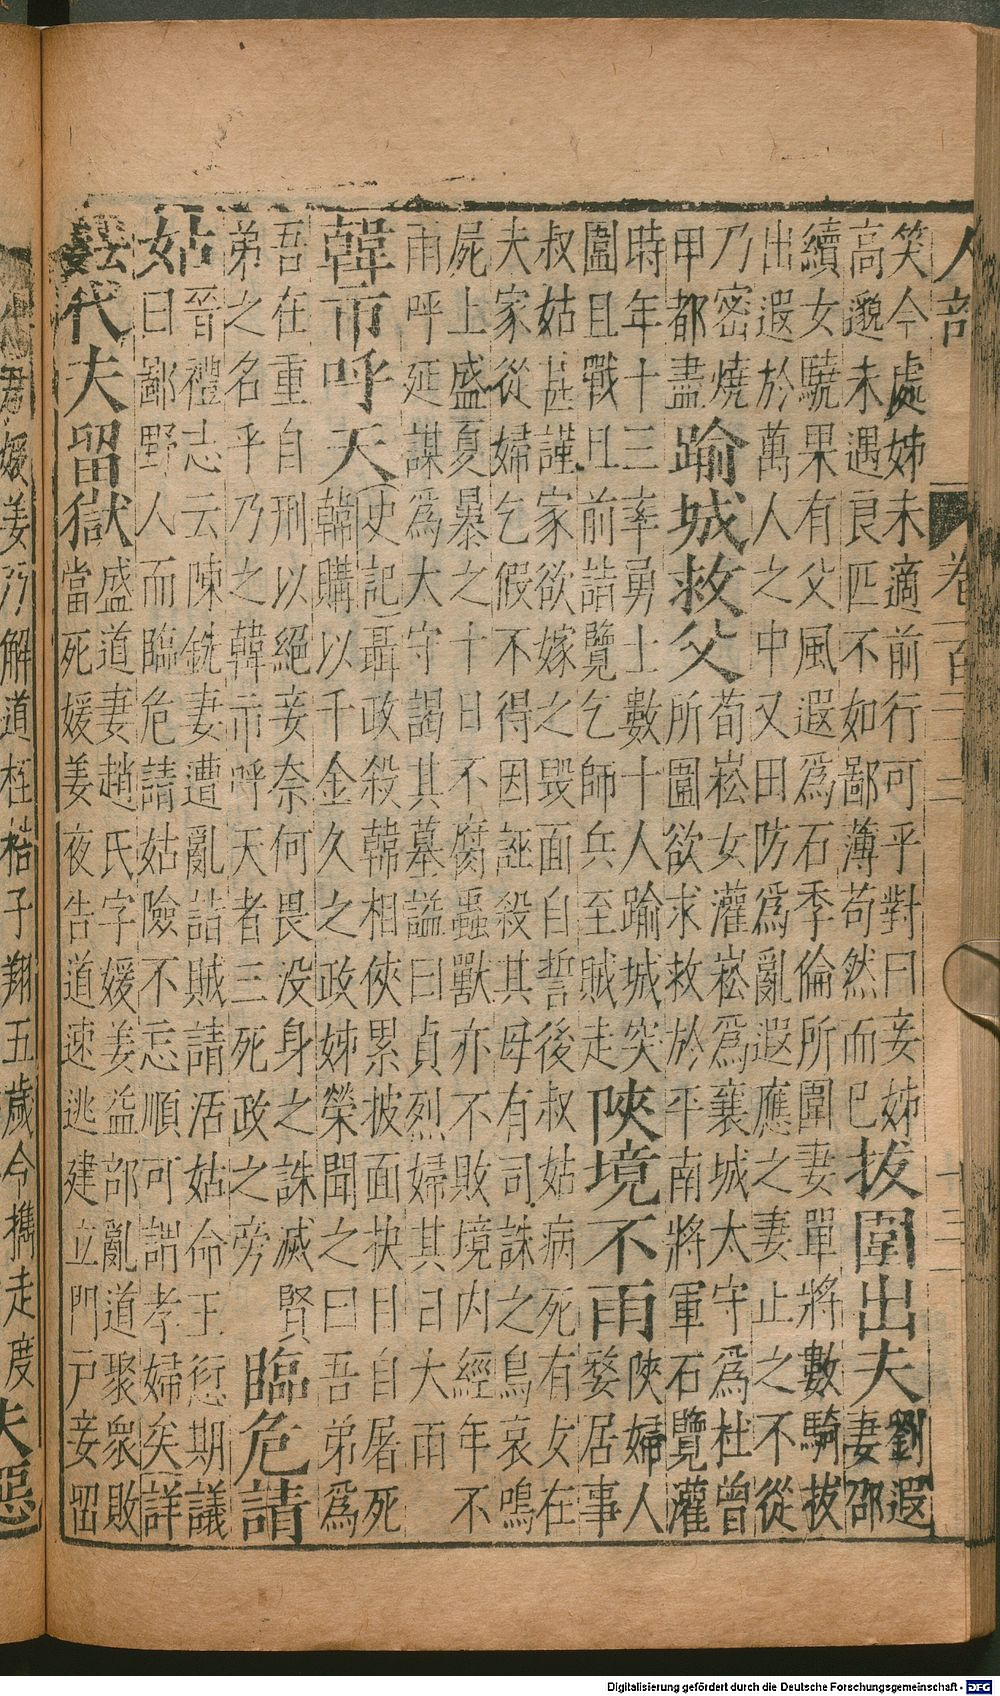 人部
卷
十三
笑今處姊未適前行可乎對曰妾姊
高邈未遇良匹不如鄙薄苟然而已
拔圍出夫
劉遐
妻邵
續女驍果有父風遐爲石季倫所圍妻單將數騎拔
出遐於萬人之中又田防爲亂遐應之妻止之不從
乃密燒
甲都盡
踰城救父
荀崧女灌崧爲襄城太守爲杜曾
所圍欲求救於平南將軍石覽灌
時年十三率勇士數十人踰城突
圍且戰且前詣覽乞師兵至賊走
陝境不雨
陝婦人
嫠居事
叔姑甚謹家欲嫁之毀面自誓後叔姑病死有女在
夫家從婦乞假不得因誣殺其母有司誅之鳥哀鳴
屍上盛夏暴之十日不腐蟲獸亦不敗境内經年不
雨呼延謀爲大守謁其墓謚曰貞烈婦其日大雨
韓市呼天
史記聶政殺韓相俠累披面抉目自屠死
韓購以千金久之政姊榮聞之曰吾弟爲
吾在重自刑以絕妾奈何畏没身之誅滅賢
弟之名乎乃之韓市呼天者三死政之旁
臨危請
姑
晉禮志云陳銑妻遭亂詰賊請活姑命王愆期議
曰鄙野人而臨危請姑險不忘順可謂孝婦矣詳
代夫留獄
盛道妻趙氏字媛姜益部亂道聚衆敗
當死媛姜夜告道速逃建立門戸妾留
媛姜乃解道桎梏子翔五歲令攜走度
夫惡
Digitalisierung gefördert durch die Deutsche Forschungsgemeinschaft - DFG